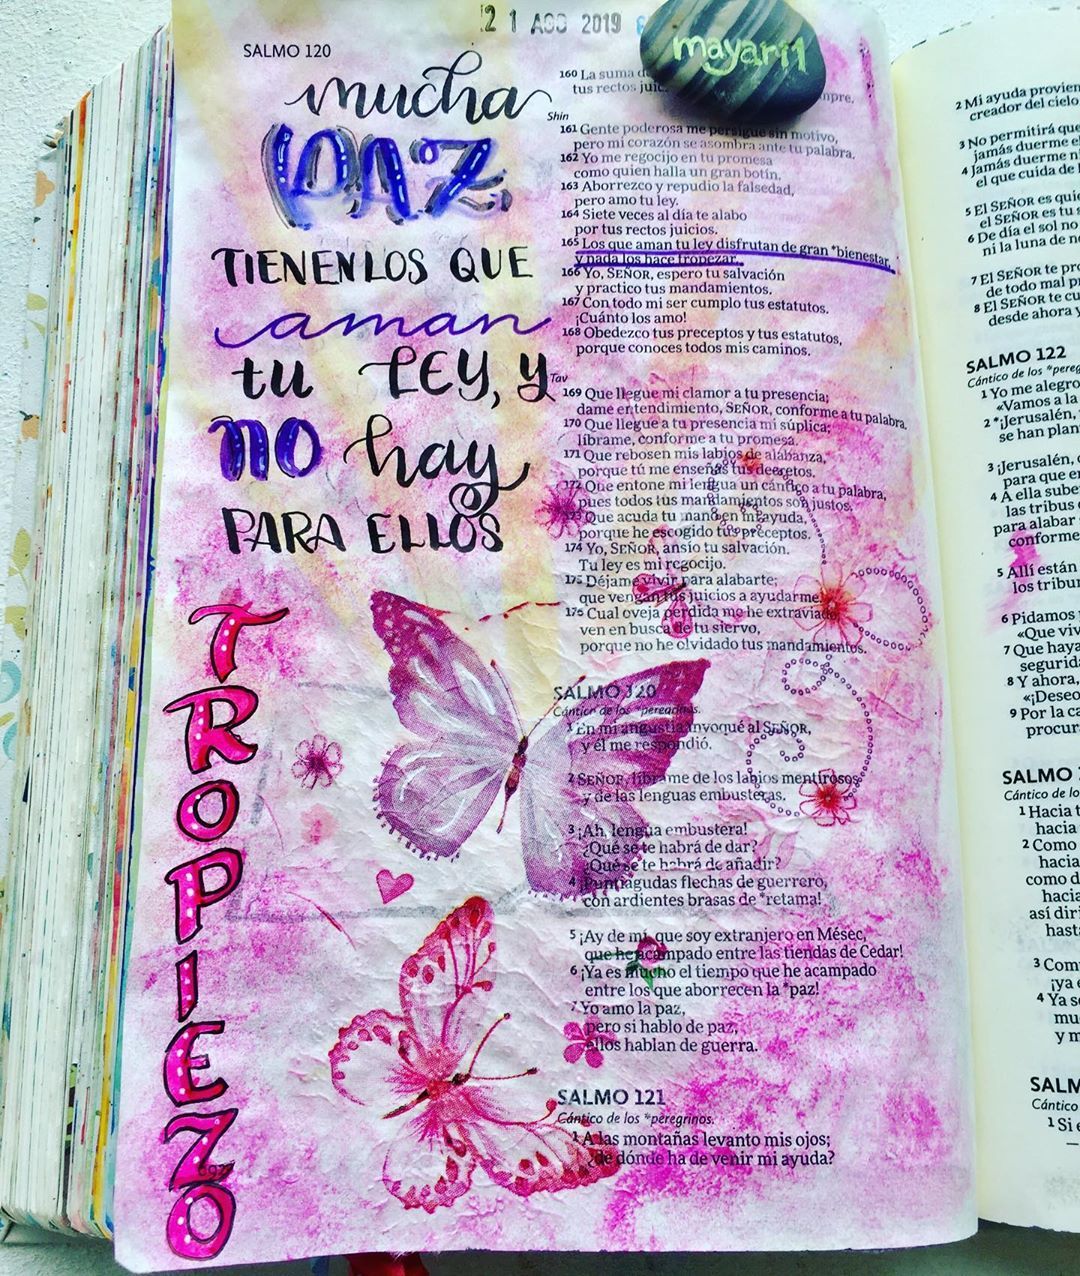 21 AGO 2019
mayari1
SALMO 120
mucha
PAZ
TIENEN LOS QUE
aman
tu LEY, y
NO hay
PARA ELLOS
TROPIEZO
160 La suma
tus rectos
Shin
161 Gente poderosa me persigue sin motivo,
pero mi corazón se asombra ante tu palabra.
162 Yo me regocijo en tu promesa
como quien halla un gran botín,
163 Aborrezco y repudio la falsedad,
pero amo tu ley.
164 Siete veces al día te alabo
por tus rectos juicios.
165 Los que aman tu ley disfrutan de gran *bienestar,
y nada los hace tropezar.
166 Yo, SEÑOR, espero tu salvación
y practico tus mandamientos.
167 Con todo mi ser cumplo tus estatutos.
¡Cuánto los amo!
168 Obedezco tus preceptos y tus estatutos,
porque conoces todos mis caminos.
Tav
169 Que llegue mi clamor a tu presencia;
dame entendimiento, SEÑOR, conforme a tu palabra.
170 Que llegue a tu presencia mi súplica;
líbrame, conforme a tu promesa.
171 Que rebosen mis labios de alabanza,
porque tú me enseñas tus decretos.
172 Que entone mi lengua un cántico a tu palabra,
pues todos tus mandamientos son justos.
173 Que acuda tu mano en mi ayuda,
porque he escogido tus preceptos.
174 Yo, SEÑOR, ansío tu salvación.
Tu ley es mi regocijo.
175 Déjame vivir para alabarte;
que vengan tus juicios a ayudarme.
176 Cual oveja perdida me he extraviado;
ven en busca de tu siervo,
porque no he olvidado tus mandamientos.
SALMO 120
Cántico de los *peregrinos.
1 En mi angustia invoqué al SEÑOR,
y él me respondió.
2 SEÑOR, líbrame de los labios mentirosos
y de las lenguas embusteras.
3 ¡Ah, lengua embustera!
¿Qué se te habrá de dar?
¿Qué se te habrá de añadir?
4 ¡Puntiagudas flechas de guerrero,
con ardientes brasas de *retama!
5 ¡Ay de mí, que soy extranjero en Mésec,
que he acampado entre las tiendas de Cedar!
6 ¡Ya es mucho el tiempo que he acampado
entre los que aborrecen la *paz!
7 Yo amo la paz,
pero si hablo de paz,
ellos hablan de guerra.
SALMO 121
Cántico de los *peregrinos.
1 A las montañas levanto mis ojos;
¿de dónde ha de venir mi ayuda?
2 Mi ayuda
creador del cielo
3 No permitirá que
jamás duerme
4 Jamás duerme
el que cuida de
5 El SEÑOR es
el SEÑOR es tu
6 De día el sol no
ni la luna de
7 El SEÑOR te
de todo mal
8 El SEÑOR te
desde ahora y
SALMO 122
Cántico de los
1 Yo me alegro
«Vamos a la
2 *¡Jerusalén,
se han
3 ¡Jerusalén,
para que
4 A ella
las tribus
para alabar
conforme
5 Allí están
los
6 Pidamos
«Que
7 Que haya
8 Y ahora,
«¡Deseo
9 Por la
SALMO
Cántico de
1 Hacia
hacia
2 Como
hacia
como
hacia
así
hasta
3
¡ya
4 Ya
y
Cántico
1 Si